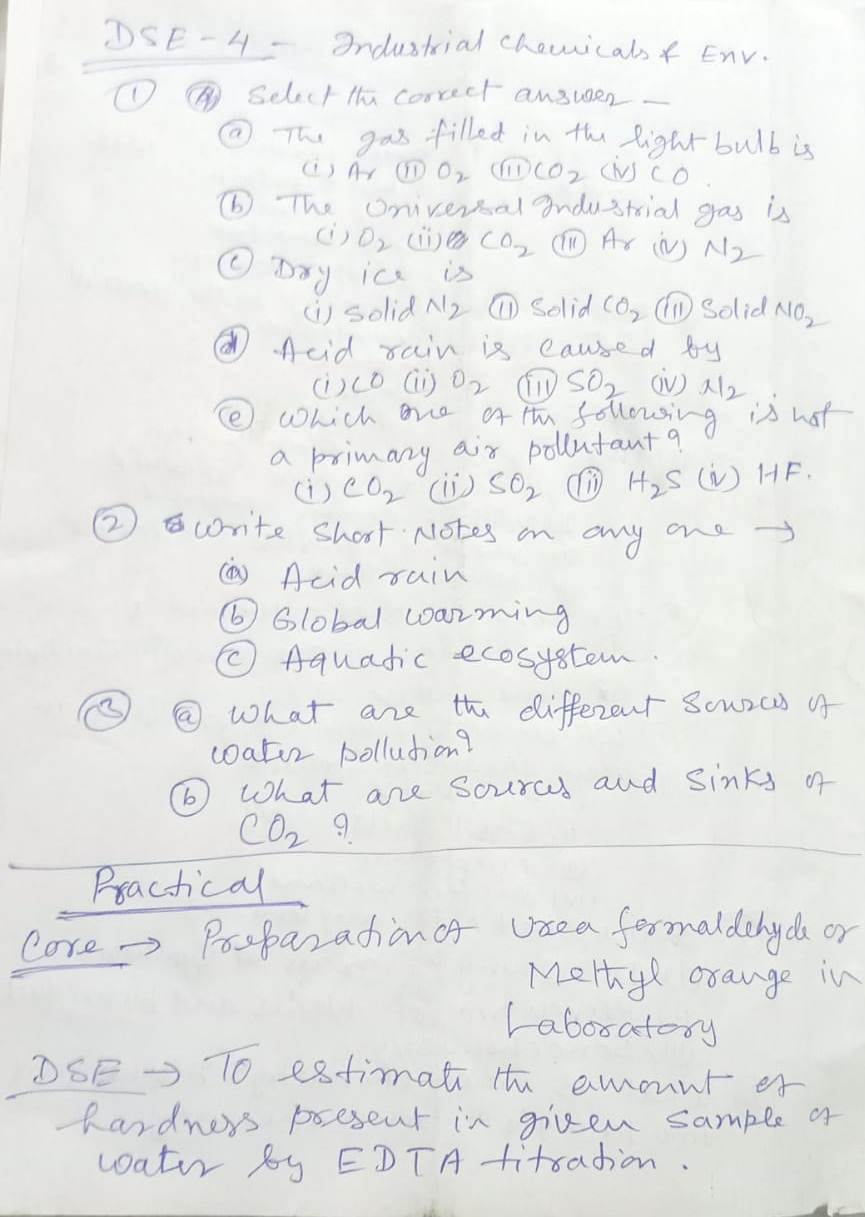 DSE-4- Industrial chemicals & Env.
① Ⓐ Select the correct answer -
ⓐ The gas filled in the light bulb is
(i) Ar (ii) O2 (iii) CO2 (iv) CO
ⓑ The Universal Industrial gas is
(i) O2 (ii) CO2 (iii) Ar (iv) N2
ⓒ Dry ice is
(i) solid N2 (ii) Solid CO2 (iii) Solid NO2
ⓓ Acid rain is caused by
(i) CO (ii) O2 (iii) SO2 (iv) N2
ⓔ Which one of the following is not
a primary air pollutant?
(i) CO2 (ii) SO2 (iii) H2S (iv) HF.
② Write Short Notes on any one →
ⓐ Acid rain
ⓑ Global warming
ⓒ Aquatic ecosystem.
③ ⓐ What are the different Sources of
water pollution?
ⓑ What are Sources and Sinks of
CO2 ?
Practical
Core → Preparation of Urea formaldehyde or
Methyl orange in
Laboratory
DSE → To estimate the amount of
hardness present in given sample of
water by EDTA titration.